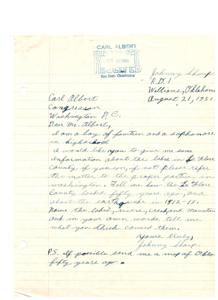 CARL ALBERT
Johnny Sharp
R.D.1
Williams, Oklahoma
August 21, 1951
Carl Albert
Congressman
Washington D.C.
Dear Mr. Albert,
I am a boy of fourteen and a sophomore
in high school.
I would like you to give me some
information about the lakes in Le Flore
County. If you, if not please refer
the matter to the proper parties in
Washington. Tell me how the Le Flore
County looked fifty years ago, and
about the earthquake in 1912-15.
Name the lakes, rivers, creeks and mountains
and in your own words tell me
what you think caused them.
Yours truly,
Johnny Sharp
P.S. If possible send me a map of Okla
fifty years ago.